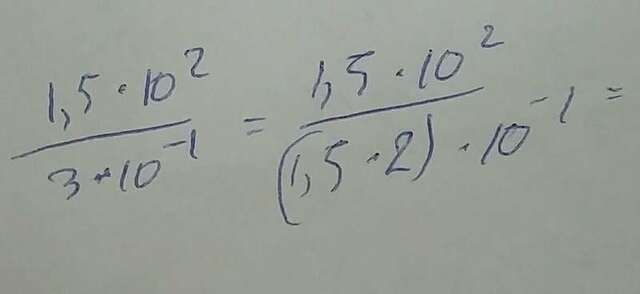 1,5·10² / 3·10⁻¹ = 1,5·10² / (1,5·2)·10⁻¹ =